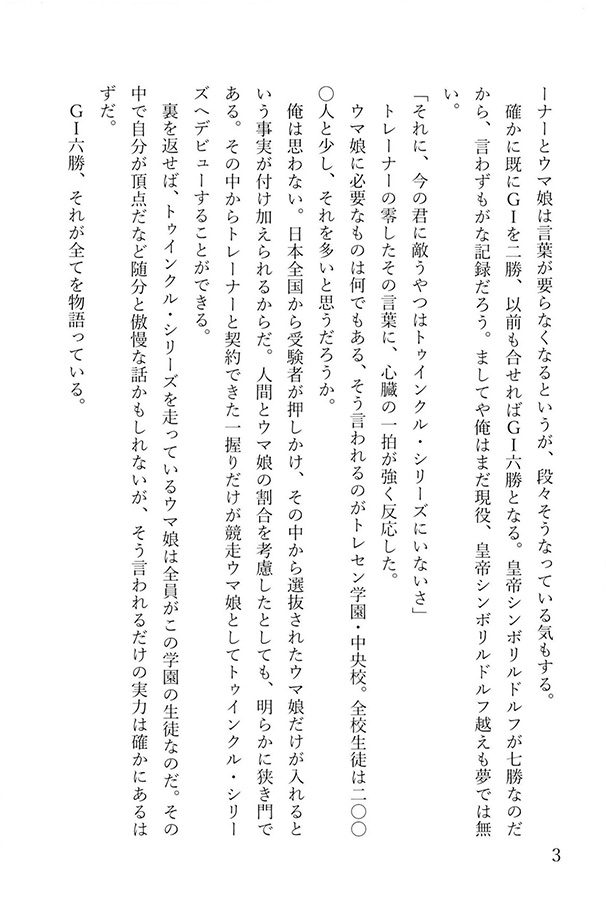 ーナーとウマ娘は言葉が要らなくなるというが、段々そうなっている気もする。
確かに既にＧＩを二勝、以前も合せればＧＩ六勝となる。皇帝シンボリルドルフが七勝なのだ
から、言わずもがな記録だろう。ましてや俺はまだ現役、皇帝シンボリルドルフ越えも夢では無
い。
「それに、今の君に敵うやつはトゥインクル・シリーズにいないさ」
トレーナーの零したその言葉に、心臓の一拍が強く反応した。
ウマ娘に必要なものは何でもある、そう言われるのがトレセン学園・中央校。全校生徒は二〇〇
〇人と少し、それを多いと思うだろうか。
俺は思わない。日本全国から受験者が押しかけ、その中から選抜されたウマ娘だけが入れると
いう事実が付け加えられるからだ。人間とウマ娘の割合を考慮したとしても、明らかに狭き門で
ある。その中からトレーナーと契約できた一握りだけが競走ウマ娘としてトゥインクル・シリー
ズへデビューすることができる。
裏を返せば、トゥインクル・シリーズを走っているウマ娘は全員がこの学園の生徒なのだ。その
中で自分が頂点だなど随分と傲慢な話かもしれないが、そう言われるだけの実力は確かにあるは
ずだ。
ＧＩ六勝、それが全てを物語っている。
3